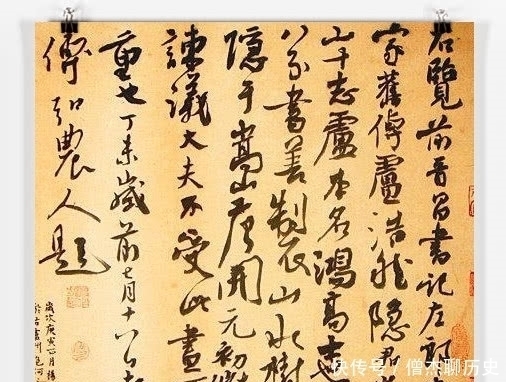 右覽前晉昌書記左郎
家舊傳盧浩然隱君
山十志盧本名鴻高士
八分書善製山水樹
隱于嵩山唐開元初
諫議大夫不受此畫
重也丁未歲前七月十八日
傅弘農人題
歲次庚寅
於古廬州包河
快传号/僧杰聊历史